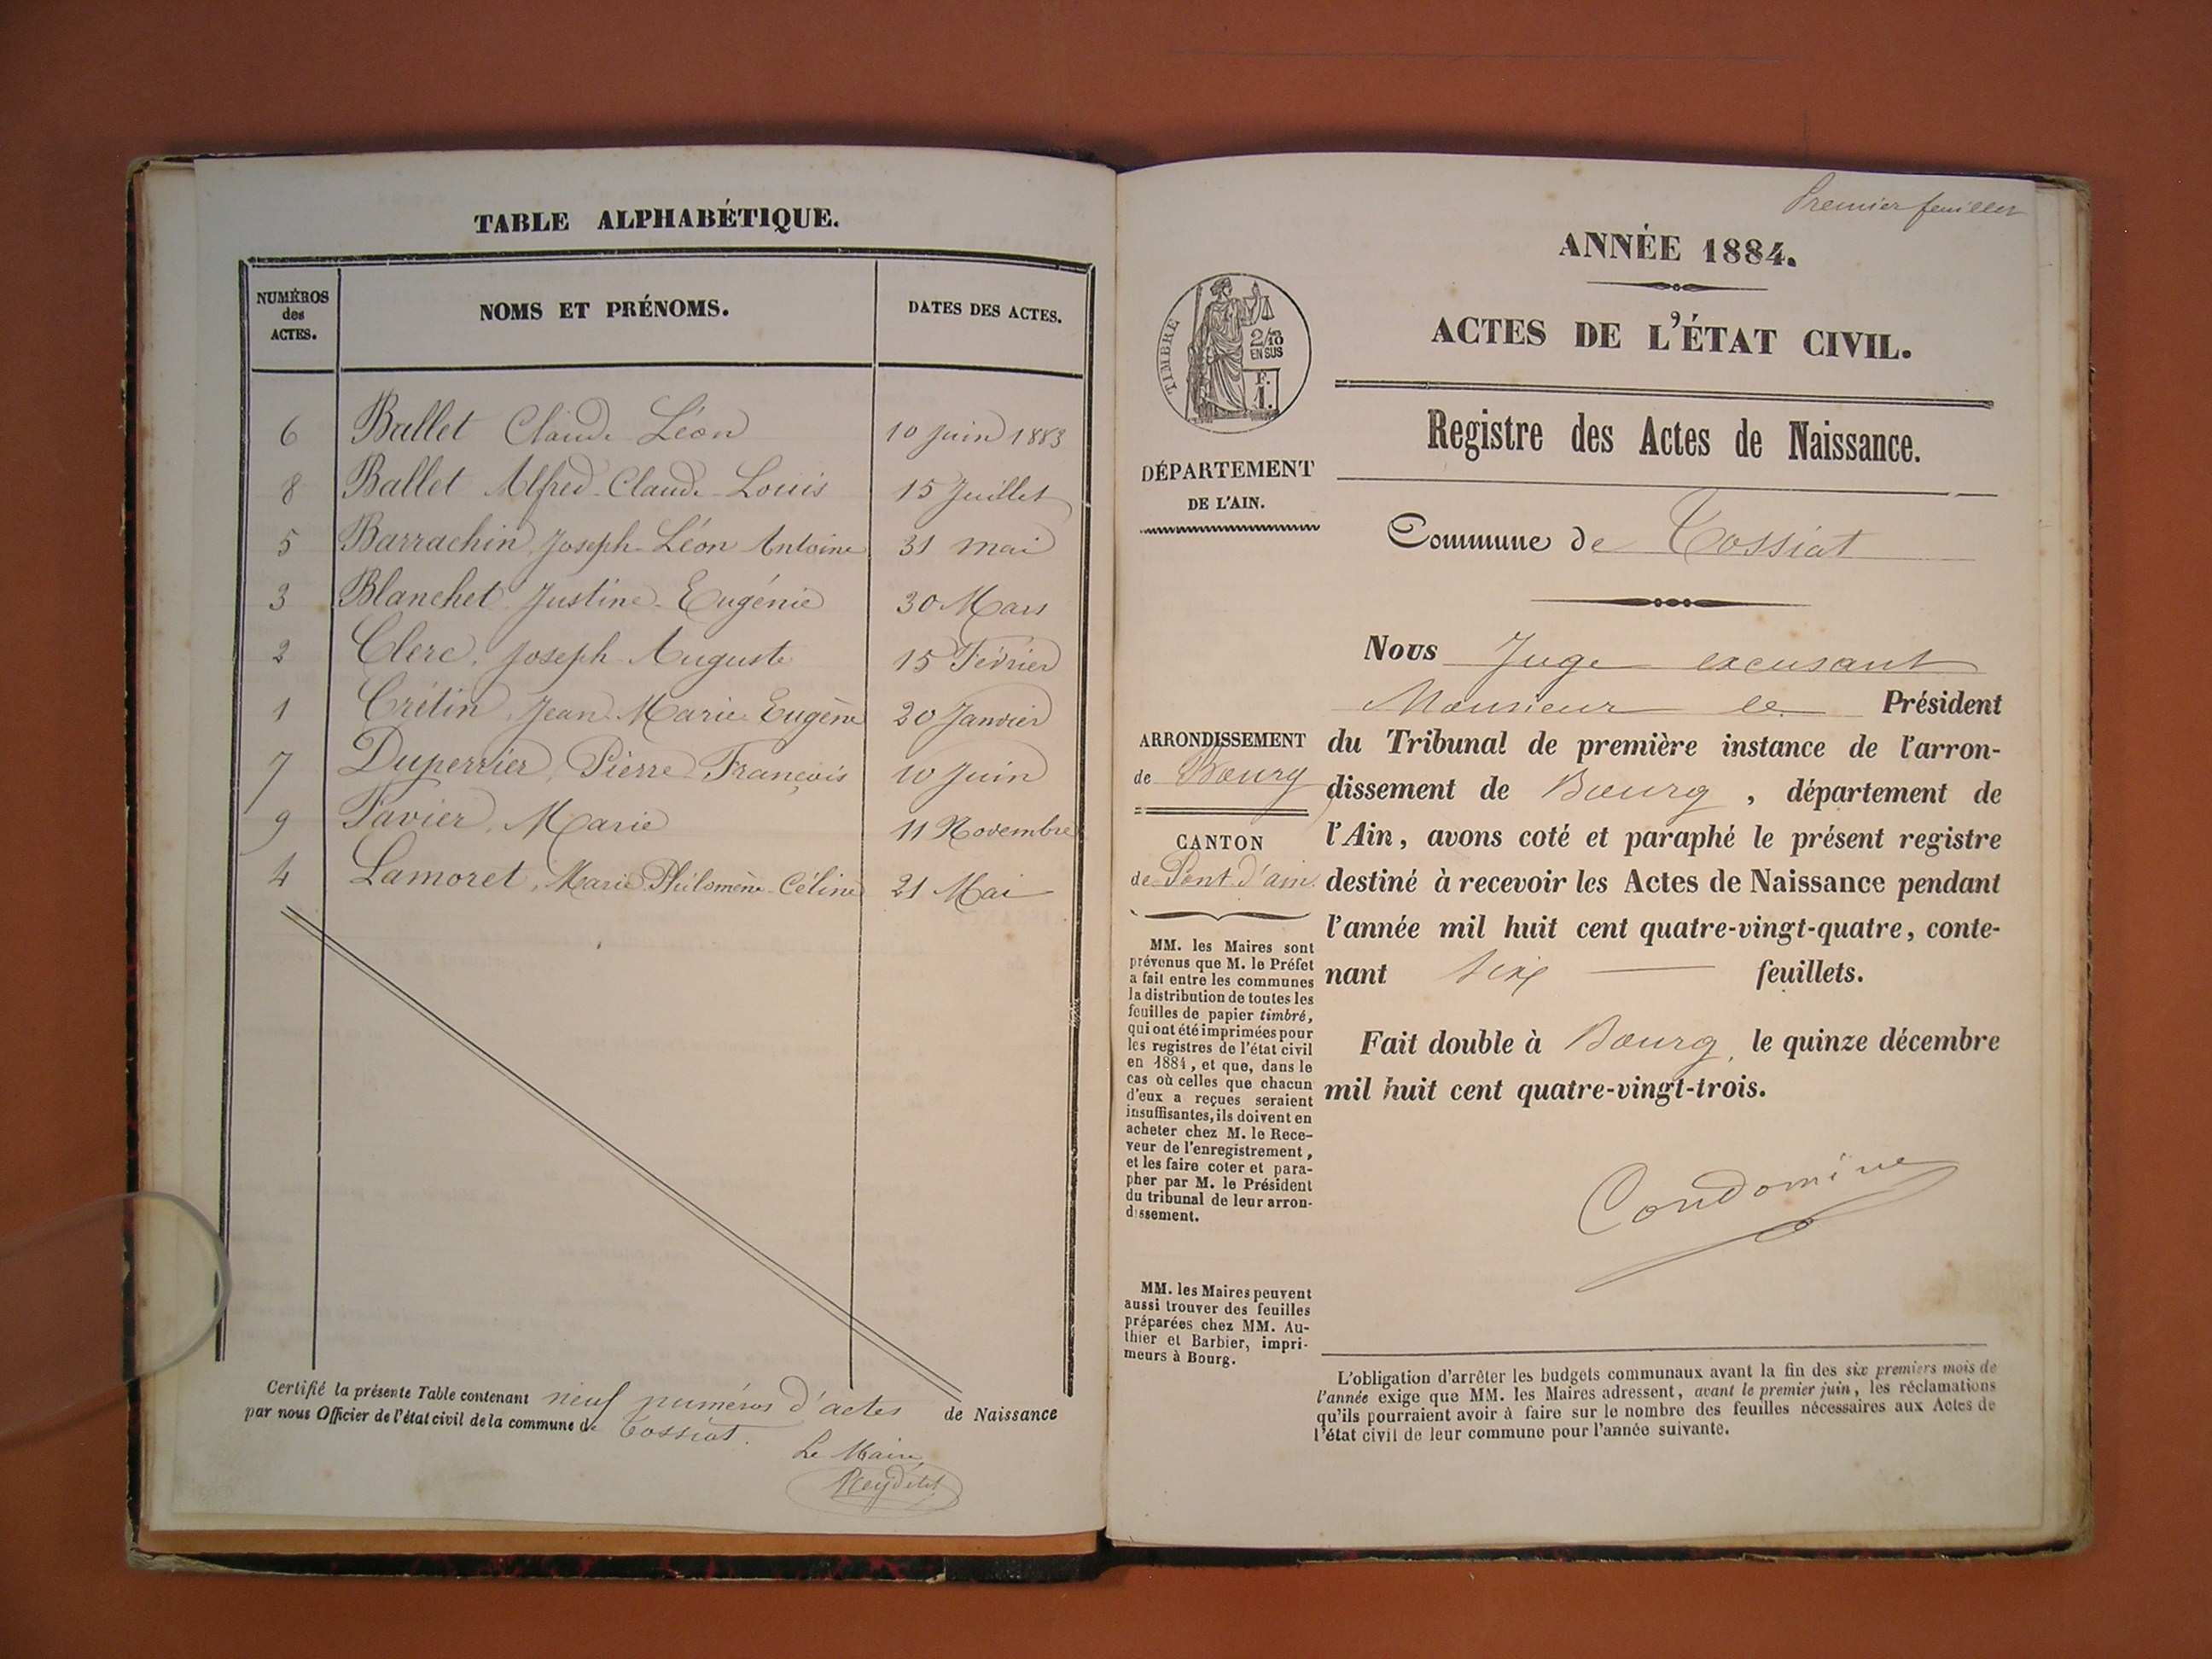 TABLE ALPHABÉTIQUE.
NUMÉROS des ACTES. NOMS ET PRÉNOMS. DATES DES ACTES.
6 Ballet Claude Léon 10 Juin 1883
8 Ballet Alfred Claude Louis 15 Juillet
5 Barrachin Joseph Léon Antoine 31 mai
3 Blanchet Justine Eugénie 30 Mars
2 Clerc, Joseph Auguste 15 Février
1 Crétin, Jean Marie Eugène 20 Janvier
7 Duperrier, Pierre François 10 Juin
9 Favier, Marie 11 Novembre
4 Lamoret, Marie Philomène Céline 21 Mai
Certifié la présente Table contenant neuf numéros d'actes de Naissance
par nous Officier de l'état civil de la commune de Tossiat.
Le Maire,
Premier feuillet
ANNÉE 1884.
ACTES DE L'ÉTAT CIVIL.
TIMBRE
2/10
EN SUS
F.
1.
Registre des Actes de Naissance.
DÉPARTEMENT
DE L'AIN.
Commune de Tossiat
ARRONDISSEMENT
de Bourg
CANTON
de Pont d'ain.
MM. les Maires sont
prévenus que M. le Préfet
a fait entre les communes
la distribution de toutes les
feuilles de papier timbré,
qui ont été imprimées pour
les registres de l'état civil
en 1884, et que, dans le
cas où celles que chacun
d'eux a reçues seraient
insuffisantes, ils doivent en
acheter chez M. le Rece-
veur de l'enregistrement,
et les faire coter et para-
pher par M. le Président
du tribunal de leur arron-
dissement.
MM. les Maires peuvent
aussi trouver des feuilles
préparées chez MM. Au-
thier et Barbier, impri-
meurs à Bourg.
Nous Juge excusant
Monsieur le Président
du Tribunal de première instance de l'arron-
dissement de Bourg, département de
l'Ain, avons coté et paraphé le présent registre
destiné à recevoir les Actes de Naissance pendant
l'année mil huit cent quatre-vingt-quatre, conte-
nant six feuillets.
Fait double à Bourg, le quinze décembre
mil huit cent quatre-vingt-trois.
Condomine
L'obligation d'arrêter les budgets communaux avant la fin des six premiers mois de
l'année exige que MM. les Maires adressent, avant le premier juin, les réclamations
qu'ils pourraient avoir à faire sur le nombre des feuilles nécessaires aux Actes de
l'état civil de leur commune pour l'année suivante.